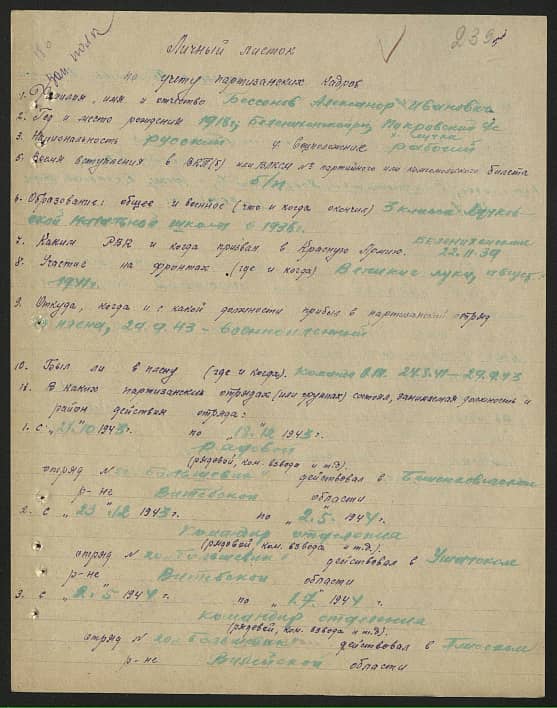 239
Личный листок
по учету партизанских кадров
1. Фамилия, имя и отчество Бессонов Александр Иванович
2. Год и место рождения 1918г,
3. Национальность русский 4. Соцположение рабочий
5. Время вступления в ВКП(б) или ВЛКСМ № партийного или комсомольского билета
б/п
6. Образование: общее и военное (что и когда окончил) 3 класса
ской начальной школы в 1936г.
7. Каким РВК и когда призван в Красную Армию.
22.11.39
8. Участие на фронтах (где и когда) Великие луки, август
1941г.
9. Откуда, когда и с какой должности прибыл в партизанский отряд
из плена, 29.9.43 - военнопленный
10. Был ли в плену (где и когда). 24.8.41 — 29.9.43
11. В каких партизанских отрядах (или группах) состоял, занимаемая должность и
район действия отряда:
1. с " 10 1943г. по " 12 1943г.
рядовой
(рядовой, ком. взвода и т.д.).
отряд № действовал в Бешенковичском
р-не Витебской области
2. с „23" 12 1943г. по „2" 5" 1944г.
Командир отделения
(рядовой, ком. взвода и т.д.).
отряд № действовал в Ушачском
р-не Витебской области
3. с „2" 5" 1944г. по 1944г.
командир отделения
(рядовой, ком. взвода и т.д.).
отряд № действовал в Плисском
р-не Вилейской области